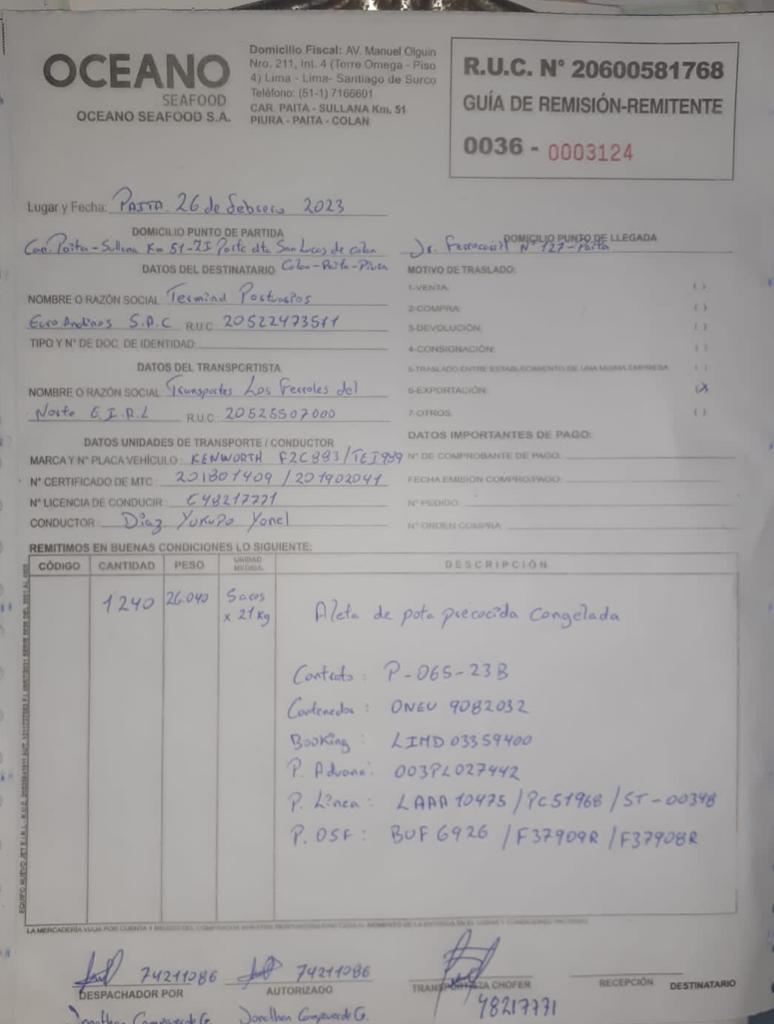 OCEANO
SEAFOOD
OCEANO SEAFOOD S.A.
Domicilio Fiscal: AV. Manuel Olguin
Nro. 211, Int. 4 (Torre Omega - Piso
4) Lima - Lima- Santiago de Surco
Teléfono: (51-1) 7166601
CAR. PAITA - SULLANA Km. 51
PIURA - PAITA - COLAN
R.U.C. N° 20600581768
GUÍA DE REMISIÓN-REMITENTE
0036 - 0003124
Lugar y Fecha: PAITA 26 de febrero 2023
DOMICILIO PUNTO DE PARTIDA
Car. Paita - Sullana Km 51 - ZI Parte alta San Lucas de colan
Colan - Paita - Piura
DOMICILIO PUNTO DE LLEGADA
Jr. Ferrocarril N° 127 - Paita
DATOS DEL DESTINATARIO
NOMBRE O RAZÓN SOCIAL Terminal Portuarios
Euro Andinos S.A.C R.U.C 20522473571
TIPO Y N° DE DOC. DE IDENTIDAD:
DATOS DEL TRANSPORTISTA
NOMBRE O RAZÓN SOCIAL Transportes Los Ferroles del
Norte E.I.R.L R.U.C 20525507000
DATOS UNIDADES DE TRANSPORTE / CONDUCTOR
MARCA Y N° PLACA VEHÍCULO: KENWORTH F2C883/TEI989
N° CERTIFICADO DE MTC: 201801409 / 201902041
N° LICENCIA DE CONDUCIR: C48217771
CONDUCTOR: Diaz Yonel
MOTIVO DE TRASLADO:
1-VENTA: ( )
2-COMPRA: ( )
3-DEVOLUCIÓN: ( )
4-CONSIGNACIÓN: ( )
5-TRASLADO ENTRE ESTABLECIMIENTO DE UNA MISMA EMPRESA ( )
6-EXPORTACIÓN: (X)
7-OTROS: ( )
DATOS IMPORTANTES DE PAGO:
N° DE COMPROBANTE DE PAGO:
FECHA EMISIÓN COMPRO/PAGO:
N° PEDIDO:
N° ORDEN COMPRA:
REMITIMOS EN BUENAS CONDICIONES LO SIGUIENTE:
CÓDIGO CANTIDAD PESO UNIDAD MEDIDA DESCRIPCIÓN
1240 26.040 Sacos x 21 Kg Aleta de pota precocida congelada
Contrato: P-065-23B
Contenedor: ONEU 9082032
Booking: LIMD 03359400
P. Aduana: 003PL027442
P. Línea: LAAA 10475 / PC51968 / ST-00348
P. OSF: BUF 6926 / F37909R / F37908R
74211086
DESPACHADOR POR
Jonathan Campoverde G.
74211086
AUTORIZADO
Jonathan Campoverde G.
TRANSPORTISTA CHOFER
48217771
RECEPCIÓN DESTINATARIO